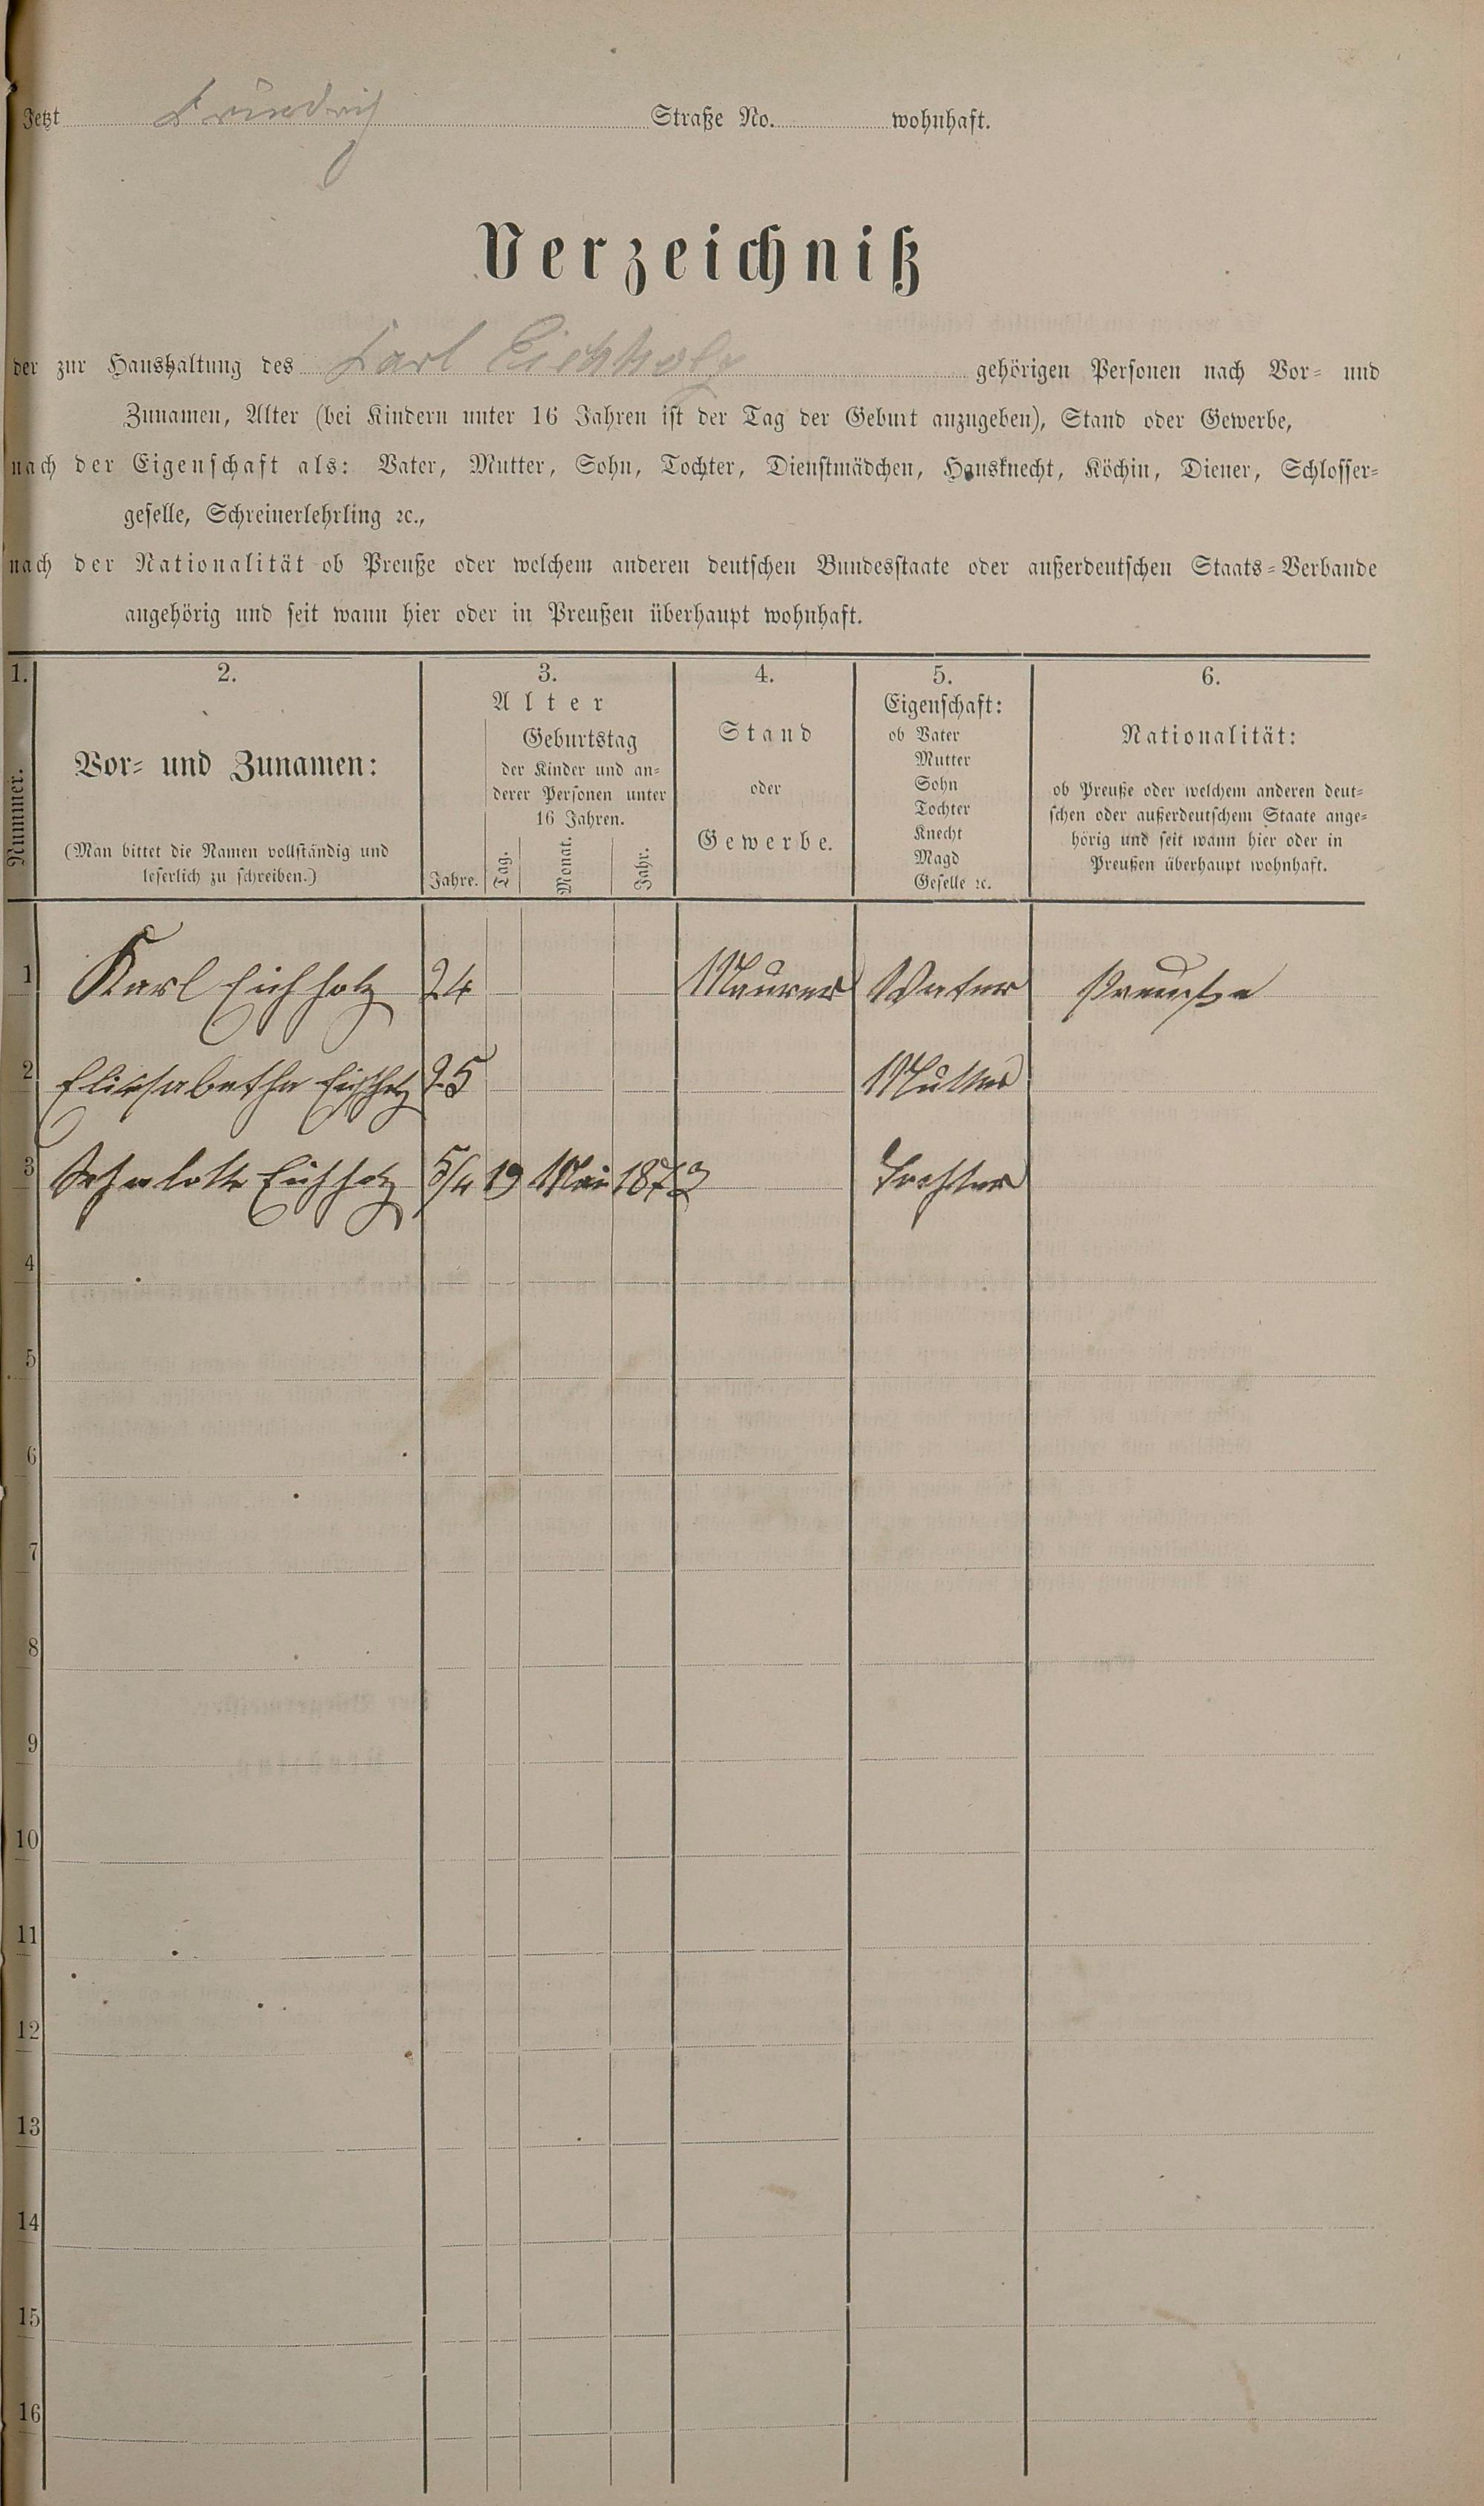 Jetzt Friedrich Straße No. wohnhaft.
Verzeichniß
der zur Haushaltung des Carl Eichholz gehörigen Personen nach Vor- und
Zunamen, Alter (bei Kindern unter 16 Jahren ist der Tag der Geburt anzugeben), Stand oder Gewerbe,
nach der Eigenschaft als: Vater, Mutter, Sohn, Tochter, Dienstmädchen, Hausknecht, Köchin, Diener, Schlosser-
geselle, Schreinerlehrling ꝛc.,
nach der Nationalität ob Preuße oder welchem anderen deutschen Bundesstaate oder außerdeutschen Staats-Verbande
angehörig und seit wann hier oder in Preußen überhaupt wohnhaft.
1. 2. 3. 4. 5. 6.
Nummer.
Vor- und Zunamen:
(Man bittet die Namen vollständig und
leserlich zu schreiben.)
Alter
Geburtstag
der Kinder und an-
derer Personen unter
16 Jahren.
Jahre. Tag. Monat. Jahr.
Stand
oder
Gewerbe.
Eigenschaft:
ob Vater
Mutter
Sohn
Tochter
Knecht
Magd
Geselle ꝛc.
Nationalität:
ob Preuße oder welchem anderen deut-
schen oder außerdeutschem Staate ange-
hörig und seit wann hier oder in
Preußen überhaupt wohnhaft.
1 Karl Eichholz 24 Maurer Vater Preuße
2 Eliesabetha Eichholz 25 Mutter
3 Eichholz 5/4 19 Mai 1873 Tochter
4
5
6
7
8
9
10
11
12
13
14
15
16